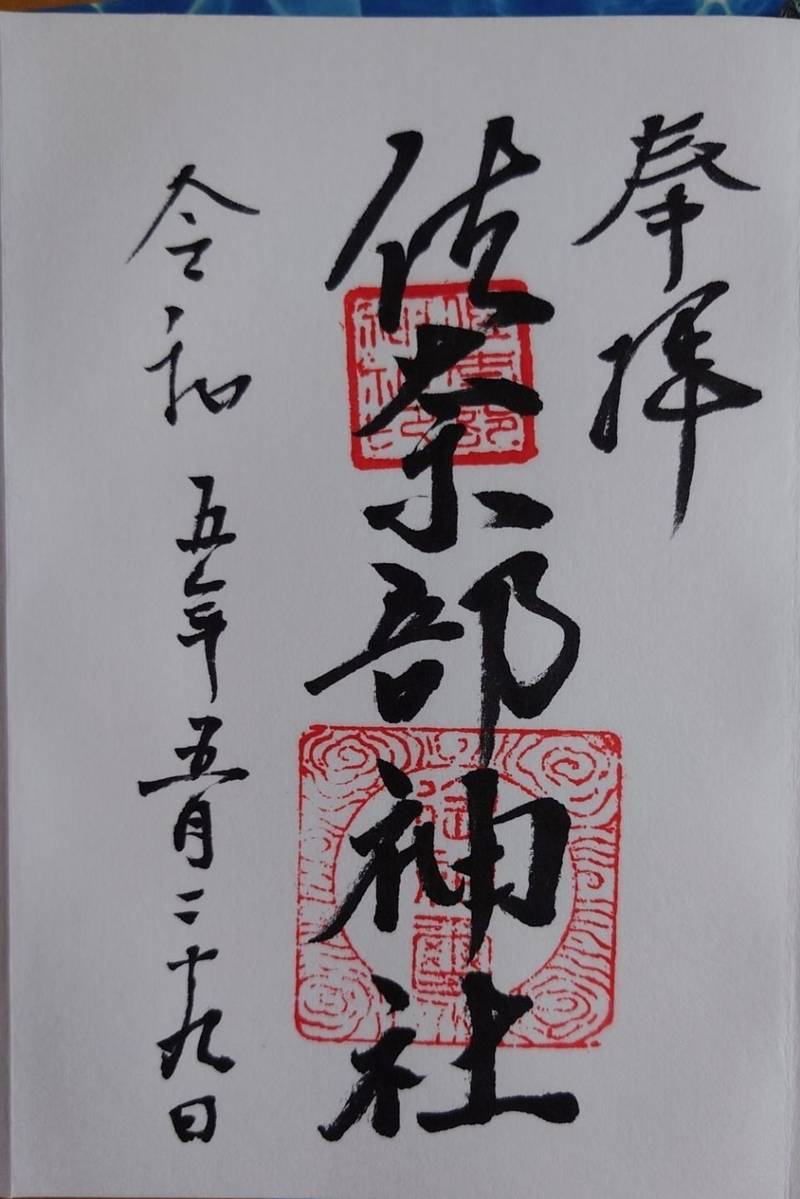 奉拝
佐奈部神社
令和五年五月二十九日